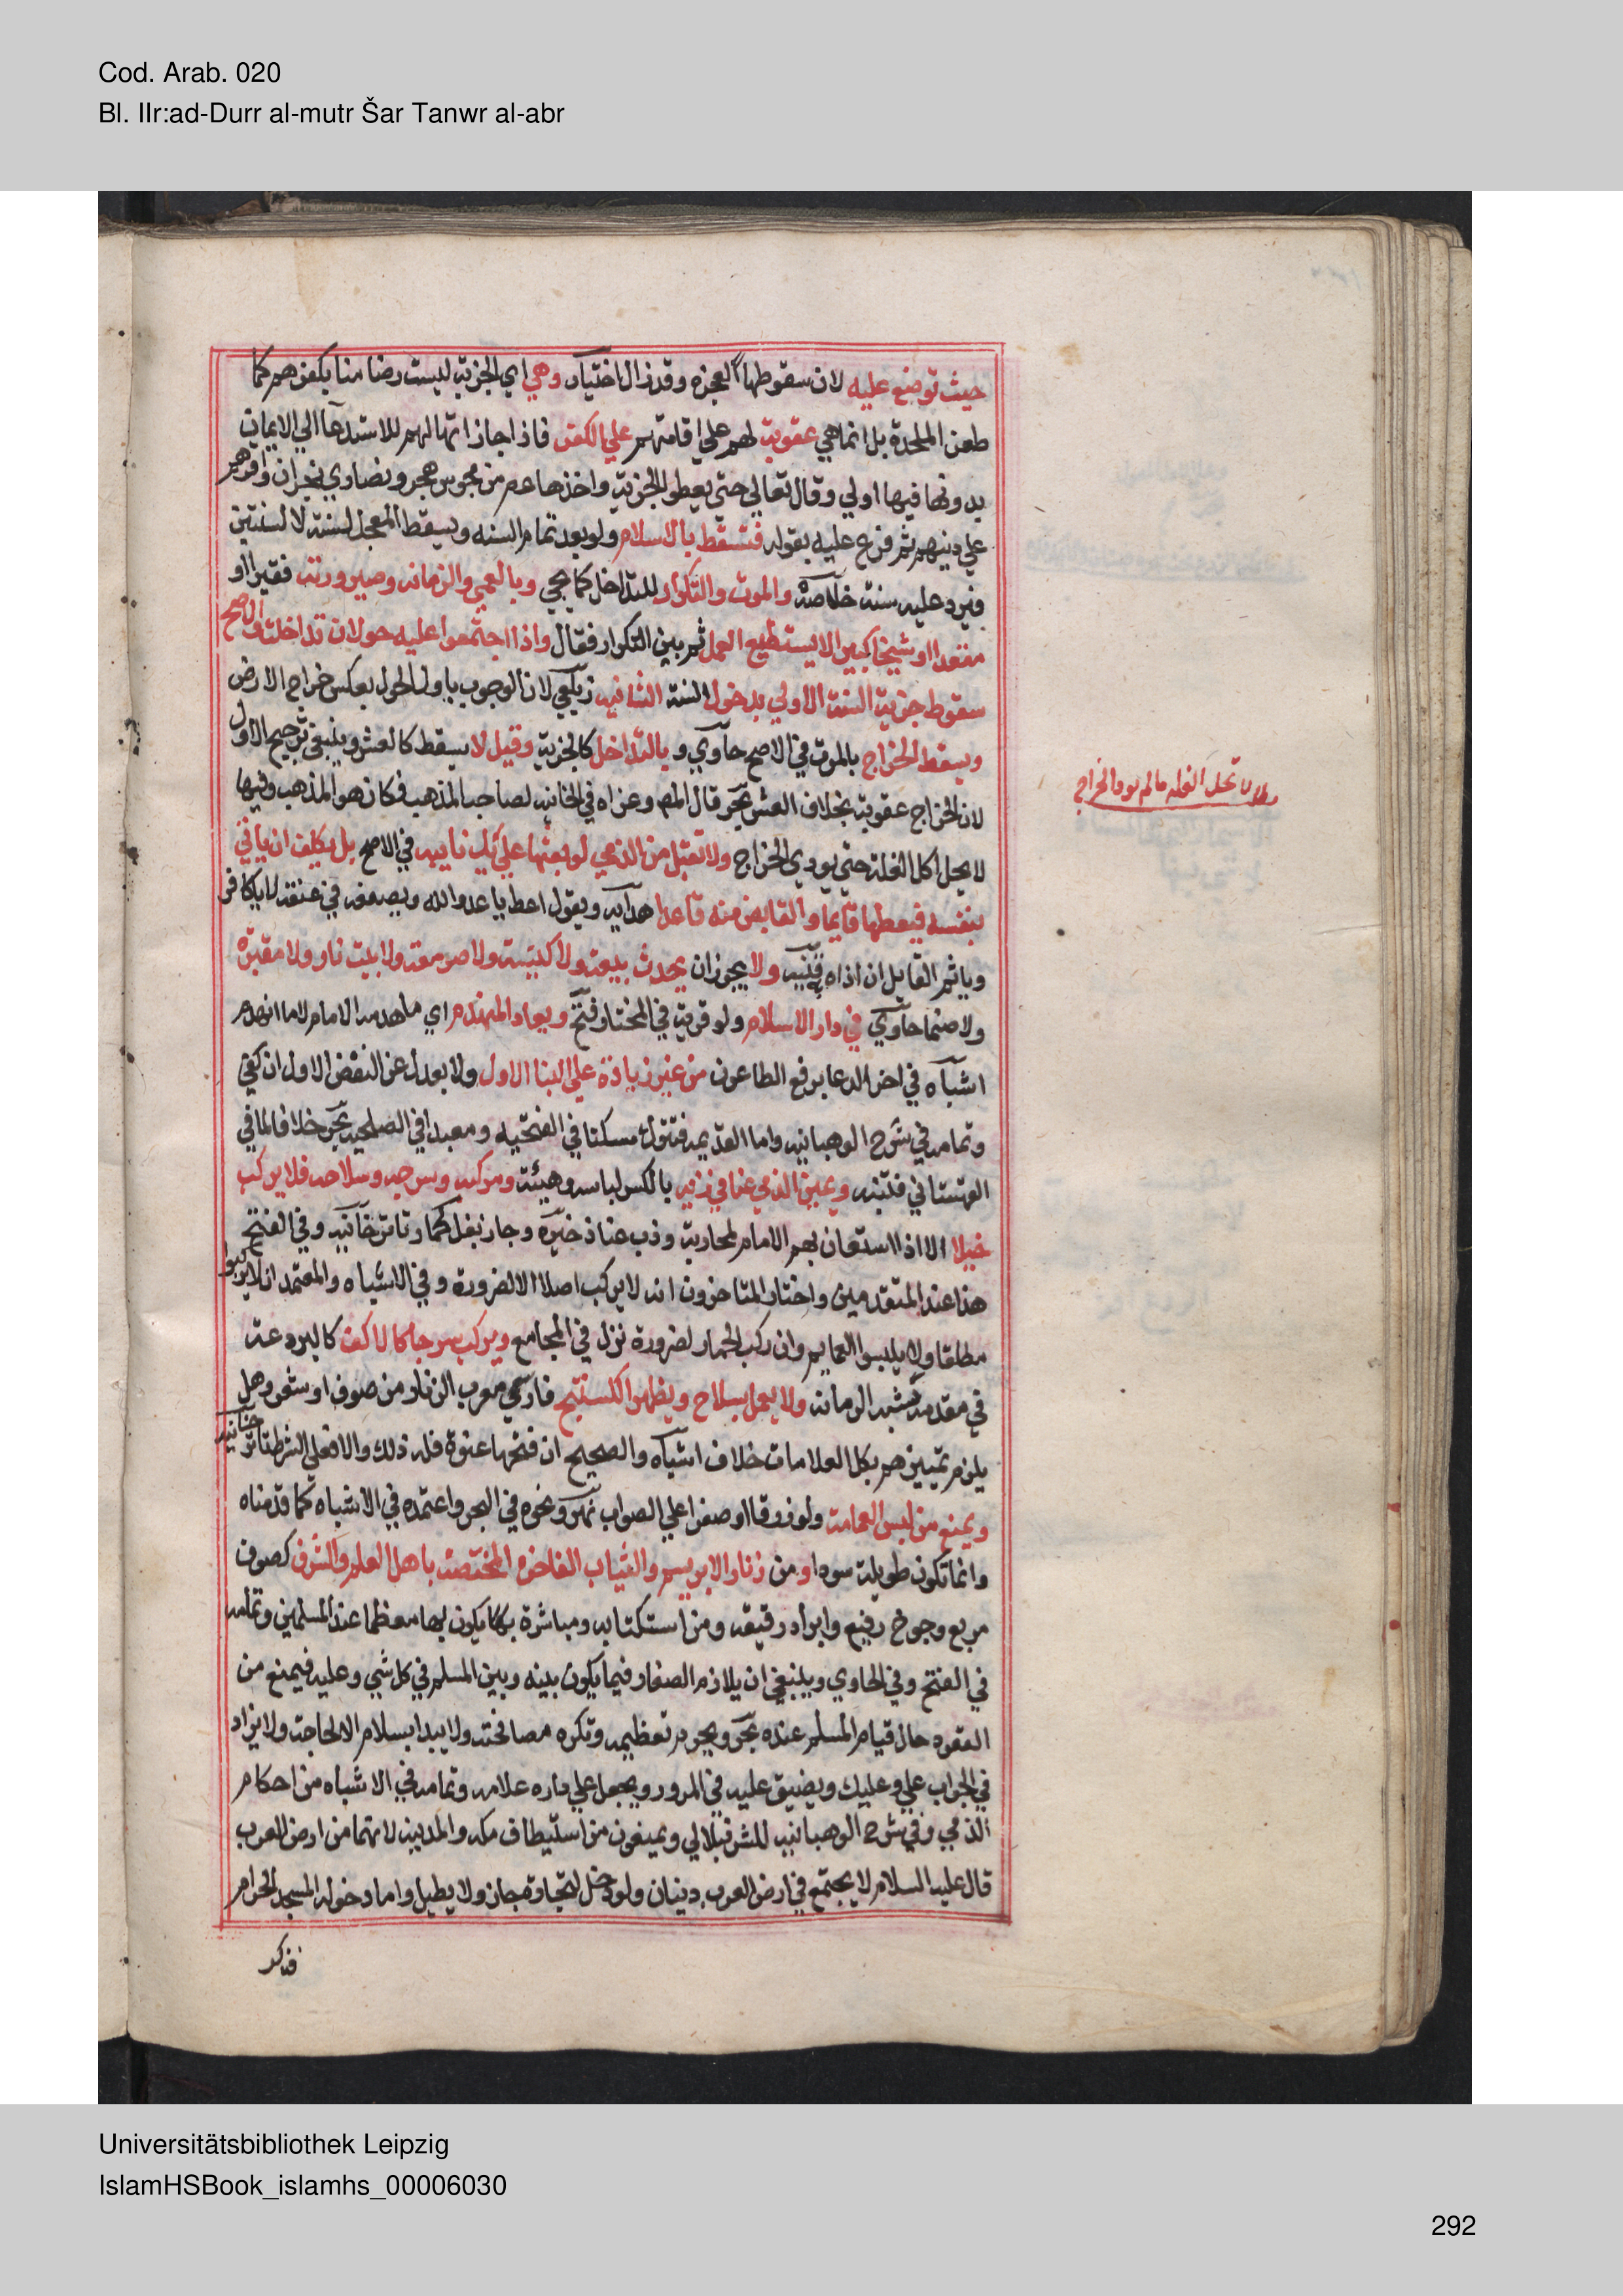 Cod. Arab. 020
Bl. IIr:ad-Durr al-mutr Šar Tanwr al-abr
حيث توضع عليه لان سقوطها لعجزه وقد زال اختيار وهي اي الجزية ليست رضا منا بكفرهم كما
طعن الملحدة بل انما هي عقوبة لهم علي اقامتهم علي الكفر فاذا جاز امهالهم للاستدعا الي الايمان
بدونها فبها اولي وقال تعالي حتي يعطوا الجزية واخذها عم من مجوس هجر ونصاري نجران واقرهم
علي دينهم ثم فرع عليه بقوله فتسقط بالاسلام ولو بعد تمام السنه ويسقط المعجل لسنة لا لسنتين
فيرد عليه سنة خلاصة والموت والتكرار للتداخل كما يجي وبالعمي والزمانه وصيرورته فقيرا او
مقعدا او شيخا كبيرا لا يستطيع العمل ثم بين التكرار فقال واذا اجتمعوا عليه حولان تداخلت والاصح
سقوط جزية السنة الاولي بدخول السنة الثانيه زيلعي لان الوجوب باول الحول بعكس خراج الارض
ويسقط الخراج بالموت في الاصح حاوي وبالتداخل كالجزية وقيل لا يسقط كالعشر وينبغي ترجيح الاول
لان الخراج عقوبة بخلاف العشر بحر قال المص وعزاه في الخانيه لصاحب المذهب فكان هو المذهب وفيها
لا يحل اكل الغلة حتي يودي الخراج ولا تقبل من الذمي لو بعثها علي يد نايبه في الاصح بل يكلف ان ياتي
بنفسه فيعطيها قايما والقابض منه قاعدا هدايه ويقول اعط يا عدو الله ويصفعه في عنقه لا يا كافر
وياثم القايل ان اذاه به قنيه ولا يجوز ان يحدث بيعة ولا كنيسة ولا صومعة ولا بيت نار ولا مقبرة
ولا صنما حاوي في دار الاسلام ولو قرية في المختار فتح ويعاد المنهدم اي ما هدمه الامام لا ما انهدم
اشباه في اخر الدعا برفع الطاعون من غير زيادة علي البنا الاول ولا يعدل عن النقض الاول ان كفي
وتمامه في شرح الوهبانيه واما القديمه فتترك مسكنا في الفتحيه ومعبدا في الصلحيه بحر خلافا لما في
القهستاني فتنبه ويميز الذمي عنا في زيه بالكسر لباسه وهيئته ومركبه وسرجه وسلاحه فلا يركب
خيلا الا اذا استعان بهم الامام لمحاربة وذب عنا ذخيره وجاز بغل كحمار تاتارخانيه وفي الفتح
هذا عند المتقدمين واختار المتاخرون انه لا يركب اصلا الا لضرورة وفي الاشباه والمعتمد ان لا يركبوا
مطلقا ولا يلبسوا العمايم وان ركب الحمار لضرورة نزل في المجامع ويركب سرجا كالاكف كالبردعة
في مقدمه شبه الرمانه ولا يعمل بسلاح ويظهر الكستيج فارسي معرب الزنار من صوف او شعر وهل
يلزم تمييزهم بكل العلامات خلاف اشباه والصحيح ان فتحها عنوة فله ذلك والا فعلي الشرط تاترخانيه
ويمنع من لبس العمامة ولو زرقا او صفرا علي الصواب نهر ونحوه في البحر واعتمده في الاشباه كما قدمناه
وانما تكون طويلة سودا ومن زنار الابريسم والثياب الفاخرة المختصة باهل العلم والشرف كصوف
مربع وجوخ رفيع وابراد رقيقه ومن استكتابه ومباشرة بها يكون بها معظما عند المسلمين وتمامه
في الفتح وفي الحاوي وينبغي ان يلازم الصغار فيما يكون بينه وبين المسلم في كل شي وعليه فيمنع من
القعود حال قيام المسلم عنده بحر ويحرم تعظيمه وتكره مصافحته ولا يبدا بسلام الا لحاجة ولا يزاد
في الجواب علي وعليك ويضيق عليه في المرور ويجعل علي داره علامه وتمامه في الاشباه من احكام
الذمي وفي شرح الوهبانيه للشرنبلالي ويمنعون من استيطان مكه والمدينه لانهما من ارض العرب
قال عليه السلام لا يجتمع في ارض العرب دينان ولو دخل لتجارة جاز ولا يطيل واما دخوله المسجد الحرام
فذكر
لا تحل الغله ما لم يود الخراج
Universitätsbibliothek Leipzig
IslamHSBook_islamhs_00006030
292